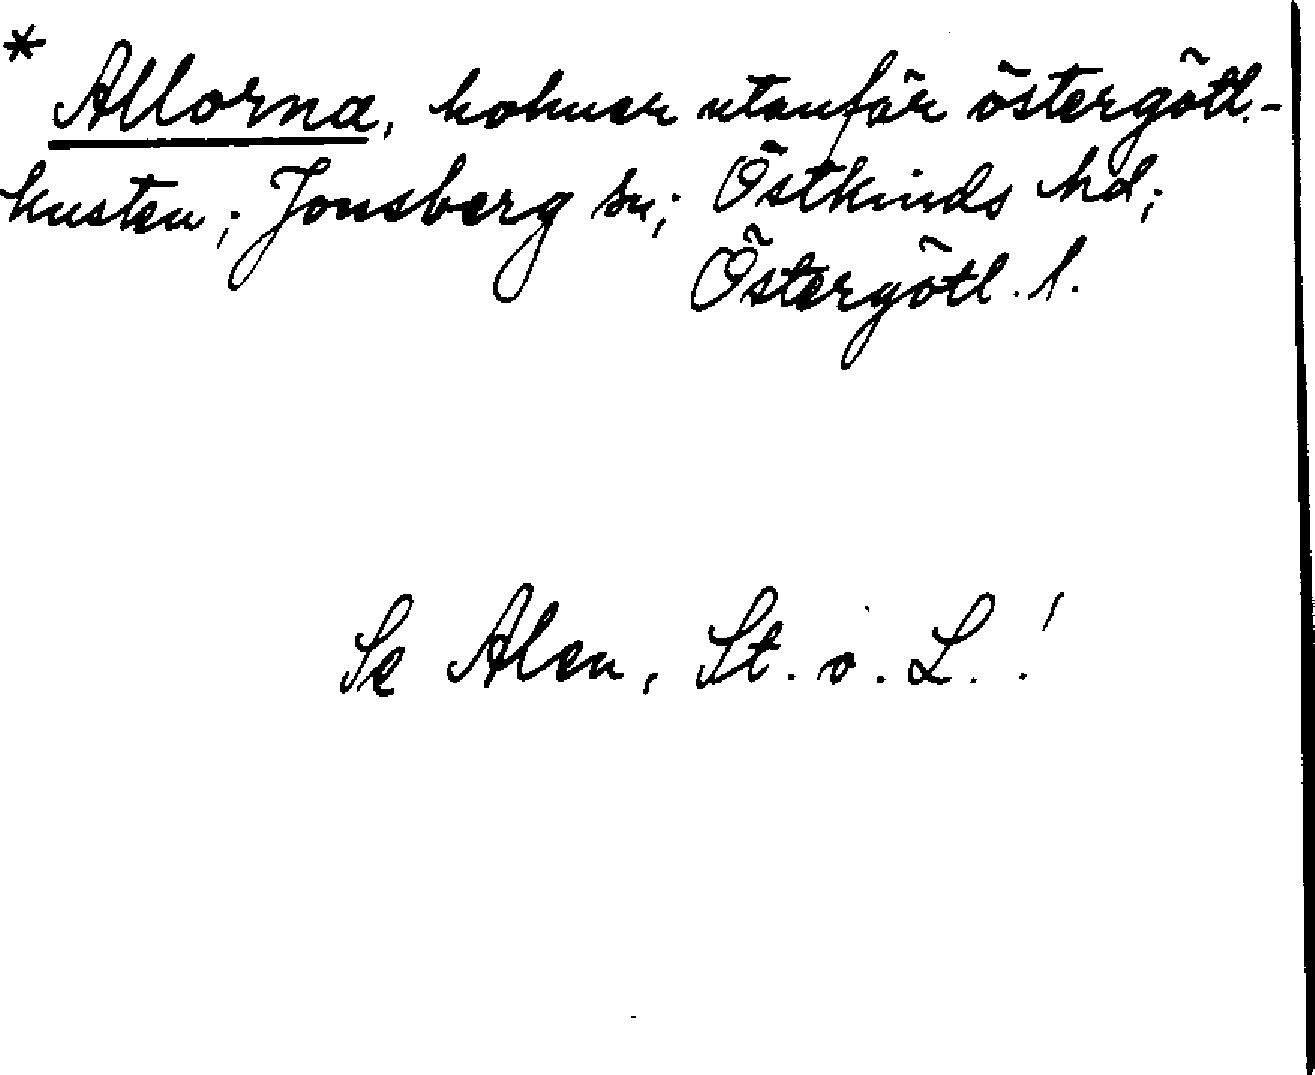 * Allorna, holmar utanför östergötl.-
kusten; Jonsberg sn; Östkinds hd;
Östergötl. l.
Se Alen, St. o. L.!